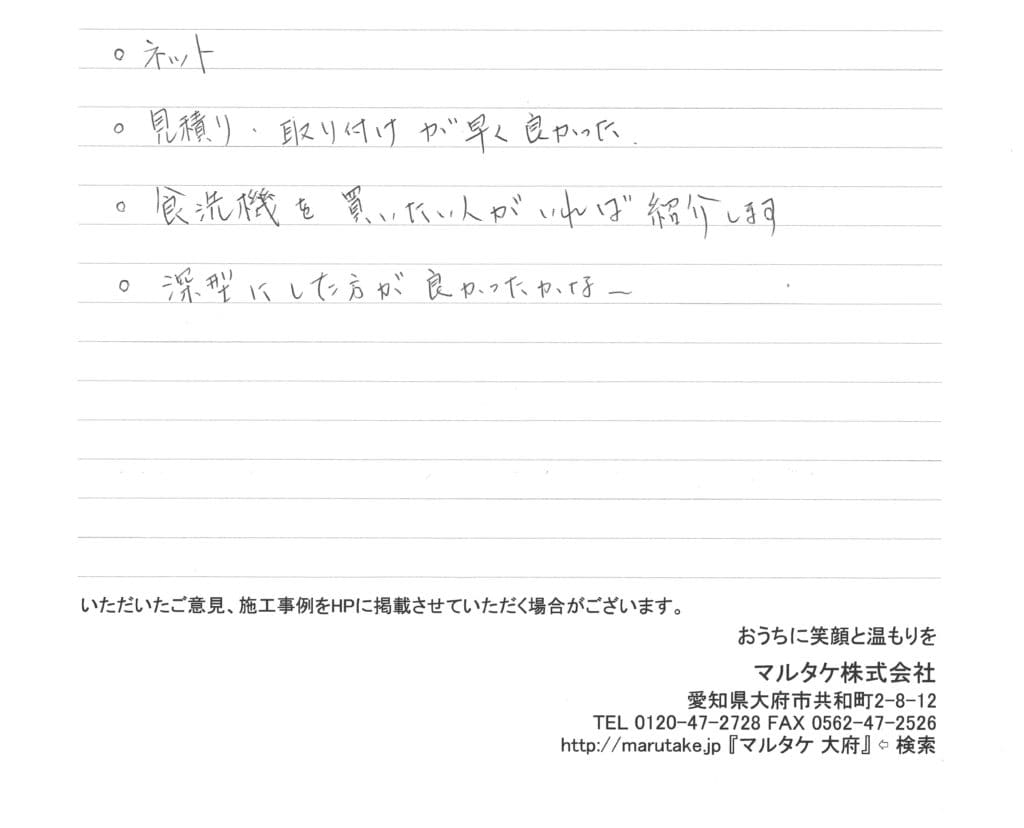 ○ ネット
○ 見積り・取り付けが早く良かった.
○ 食洗機を買いたい人がいれば紹介します
○ 深型にした方が良かったかな〜
いただいたご意見、施工事例をHPに掲載させていただく場合がございます。
おうちに笑顔と温もりを
マルタケ株式会社
愛知県大府市共和町2-8-12
TEL 0120-47-2728 FAX 0562-47-2526
http://marutake.jp『マルタケ 大府』⇦ 検索